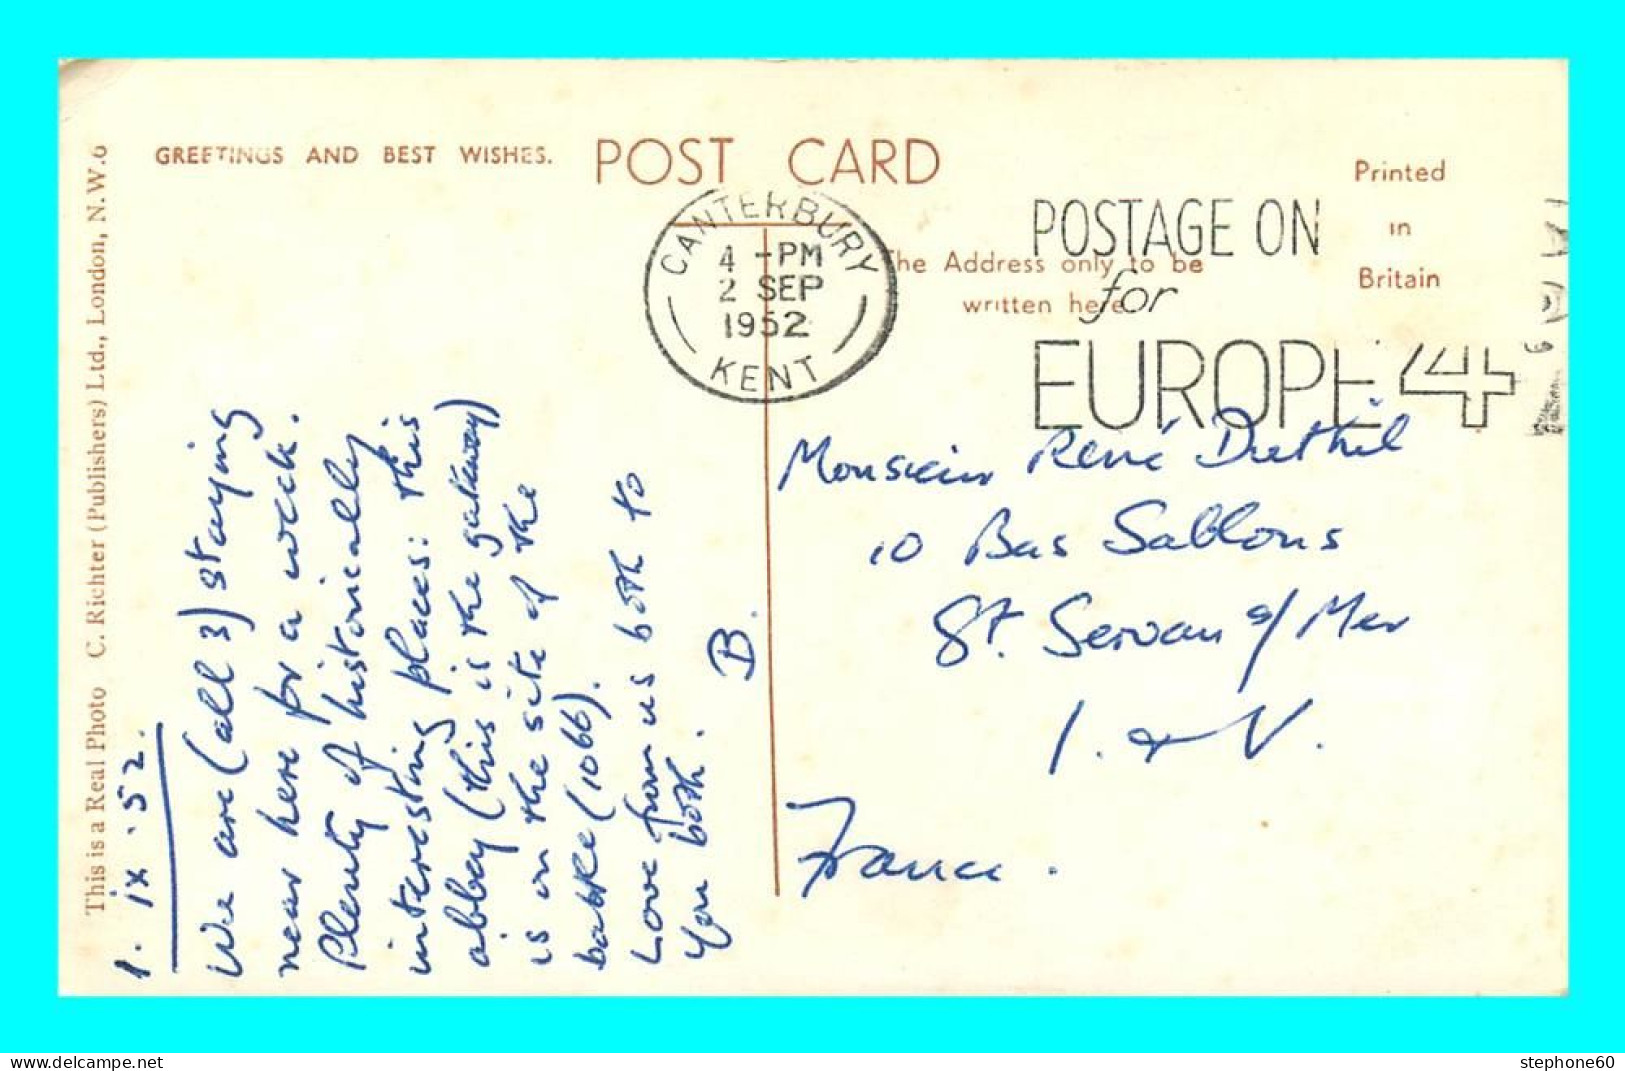 GREETINGS AND BEST WISHES.
POST CARD
Printed
in
Britain
The Address only to be
written here.
This is a Real Photo C. Richter (Publishers) Ltd., London, N.W.6
CANTERBURY
4 - PM
2 SEP
1952
KENT
POSTAGE ON
for
EUROPE 4
1. ix. 52.
We are (all 3) staying
near here for a week.
Plenty of historically
interesting places: this
abbey (this is the gateway)
is on the site of the
battle (1066).
Love from us both to
you both.
B.
Monsieur René Duthil
10 Bas Sablons
St. Servan s/ Mer
I. & V.
France.
stephone60